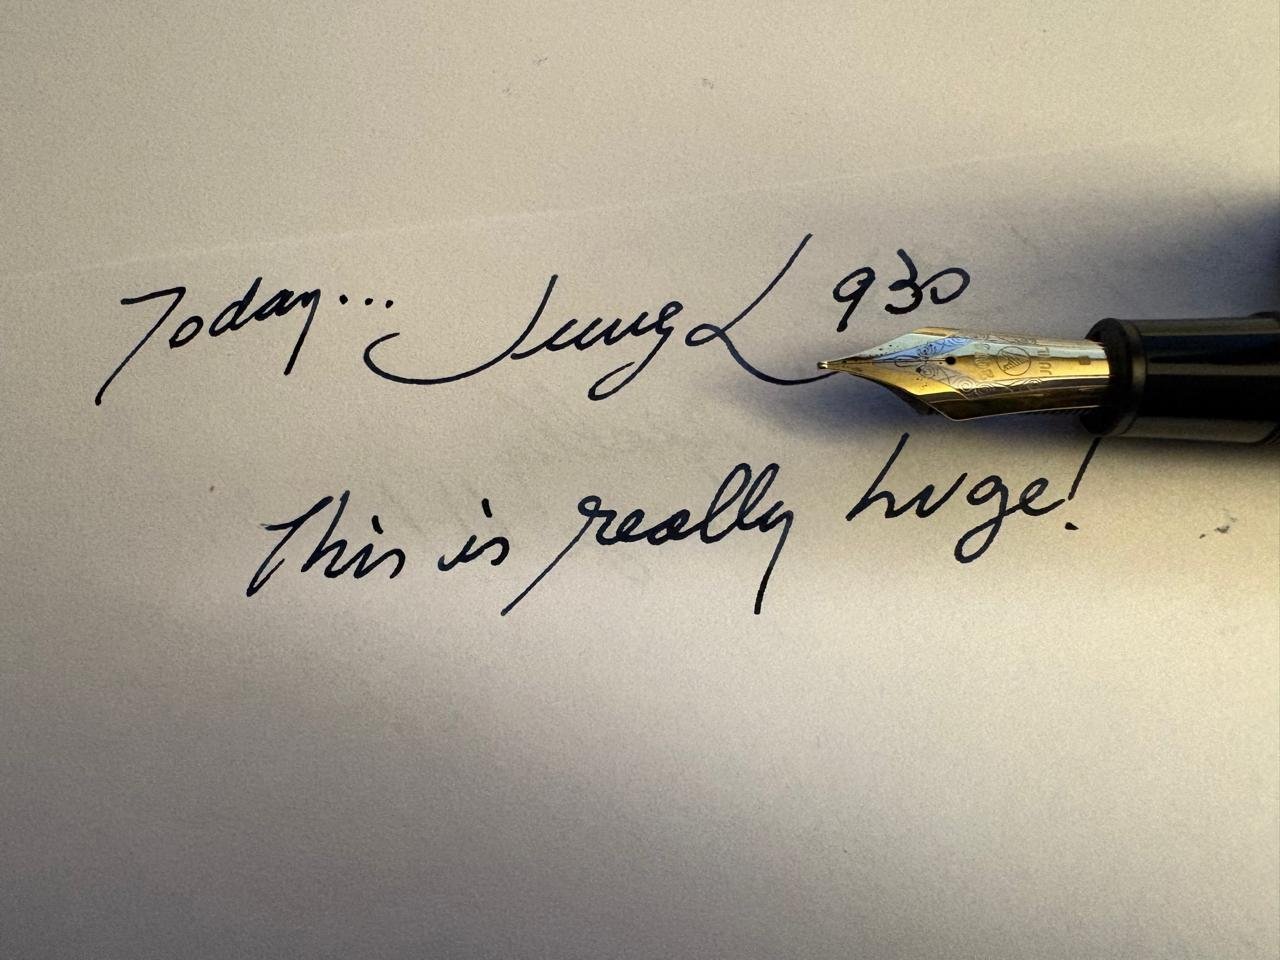 Today... Jung L 930
This is really huge!